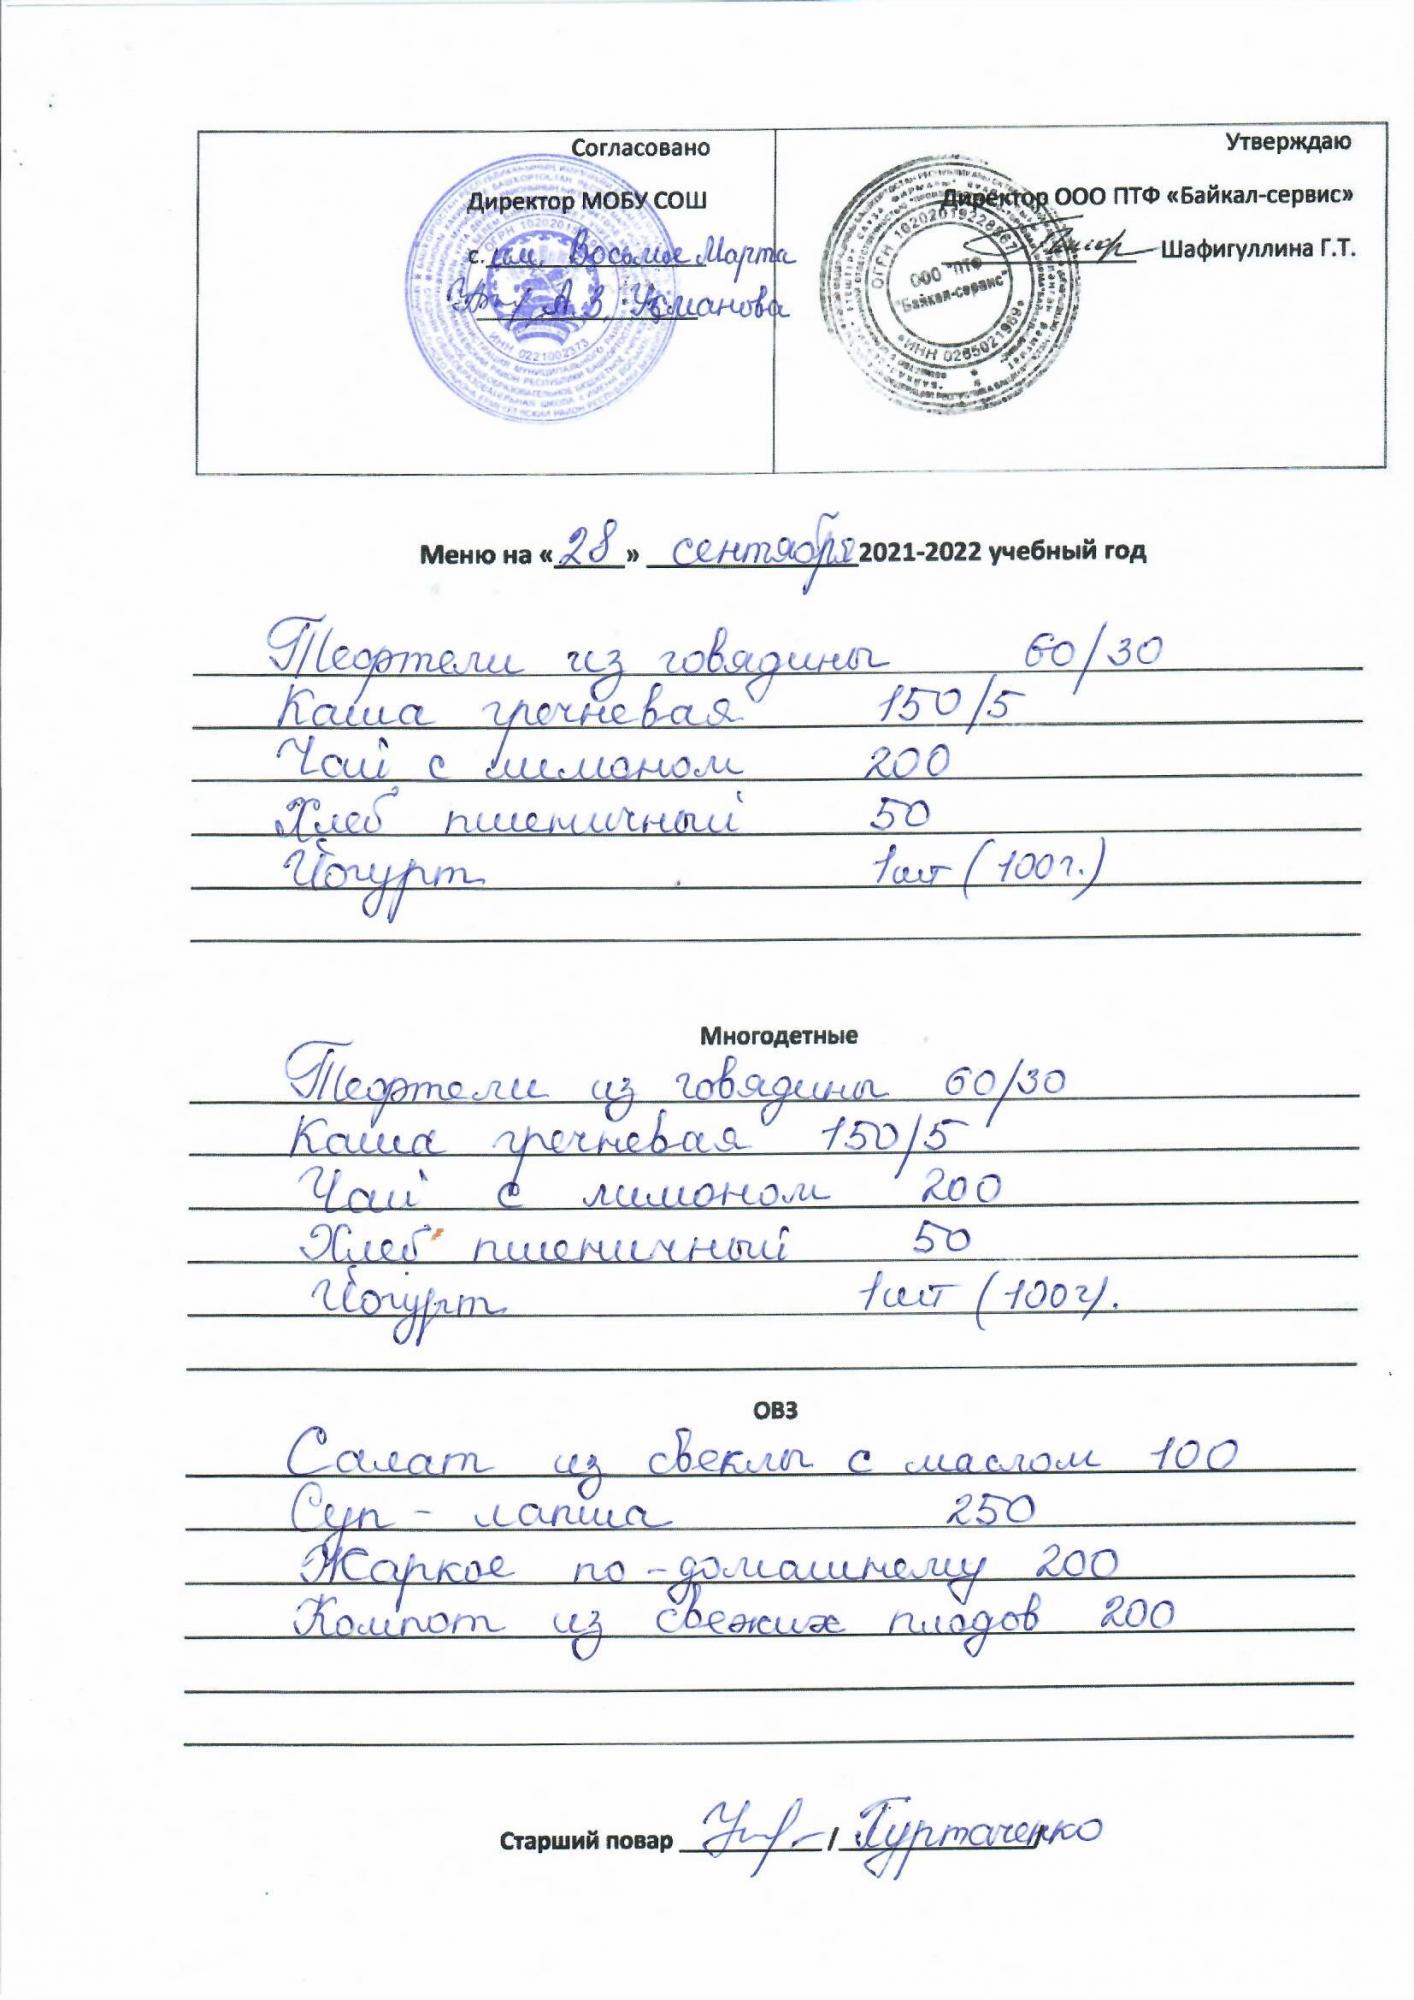 Согласовано
Директор МОБУ СОШ
с. им. Восьмое Марта
А.З. Усманова
Утверждаю
Директор ООО ПТФ «Байкал-сервис»
Шафигуллина Г.Т.
ОГРН 1020201
ИНН 0221002373
ОГРН 1020201922896
ООО "ПТФ
"Байкал-сервис"
ИНН 0265021969
Меню на «28» сентября 2021-2022 учебный год
Тефтели из говядины 60/30
Каша гречневая 150/5
Чай с лимоном 200
Хлеб пшеничный 50
Йогурт 1шт (100г.)
Многодетные
Тефтели из говядины 60/30
Каша гречневая 150/5
Чай с лимоном 200
Хлеб пшеничный 50
Йогурт 1шт (100г).
ОВЗ
Салат из свеклы с маслом 100
Суп - лапша 250
Жаркое по-домашнему 200
Компот из свежих плодов 200
Старший повар / Гуртаченко /